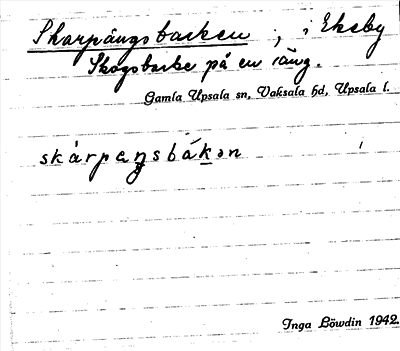 Skarpängsbacken, i Ekeby
Skogsbacke på en äng.
Gamla Upsala sn, Vaksala hd, Upsala l.
skarpeŋsbakən
Inga Löwdin 1942.